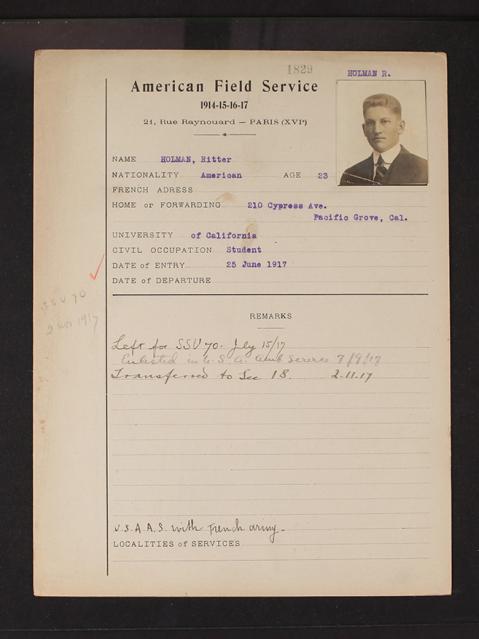 1829
HOLMAN R.
American Field Service
1914-15-16-17
21, Rue Raynouard — PARIS (XVI<sup>e</sup>)
NAME HOLMAN, Ritter
NATIONALITY American AGE 23
FRENCH ADRESS
HOME or FORWARDING 210 Cypress Ave.
Pacific Grove, Cal.
UNIVERSITY of California
CIVIL OCCUPATION Student
DATE of ENTRY 25 June 1917
DATE of DEPARTURE
SSU 70
2 Nov 1917
REMARKS
Left for SSU 70. Jly 15/17
Enlisted in U.S.A. Amb Service
Transferred to Sec 18. 2-11-17
U.S.A.A.S. with French army-
LOCALITIES of SERVICES